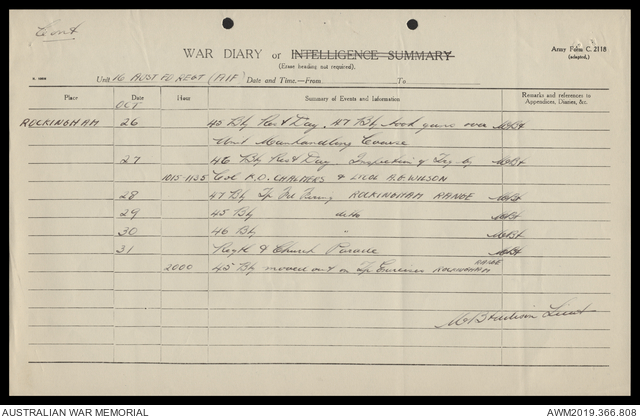 Cont
WAR DIARY or INTELLIGENCE SUMMARY
(Erase heading not required).
Army Form C. 2118
(adapted.)
Unit 16 AUST FD REGT (AIF) Date and Time.—From To
Place Date Hour Summary of Events and Information Remarks and references to Appendices, Diaries, &c.
OCT
ROCKINGHAM 26 45 Bty Rest Day. 47 Bty took guns over
Unit Manhandling Course
27 46 Bty Rest Day Inspection of by
1015-1135 Col F.O. CHALMERS & LTCOL A.G. WILSON
28 47 Bty Tp Firing ROCKINGHAM RANGE
29 45 Bty ditto
30 46 Bty "
31 Regtl & Church Parade
2000 45 Bty moved out on Tp Exercises ROCKINGHAM RANGE
Lieut
AUSTRALIAN WAR MEMORIAL
AWM2019.366.808